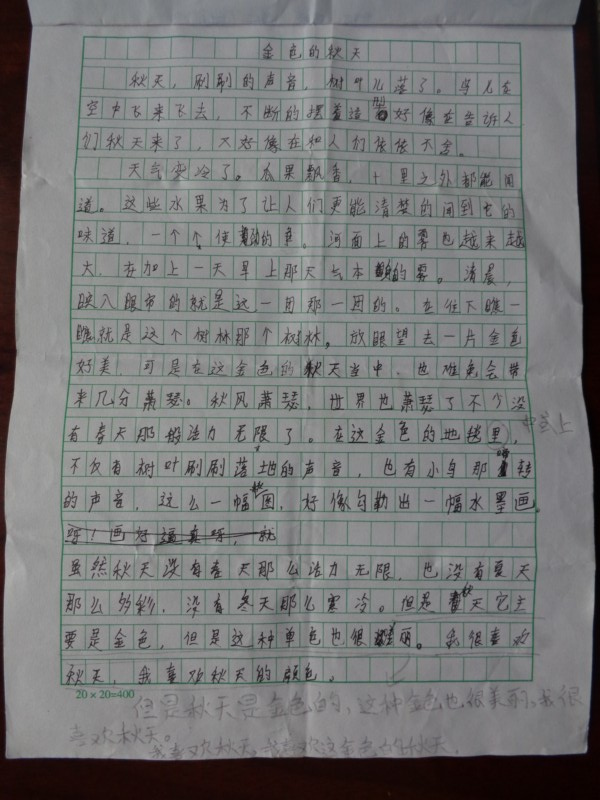 金色的秋天
秋天，刷刷的声音，树叶儿落了。鸟儿在
空中飞来飞去，不断的摆着造型好像在告诉人
们秋天来了，又好像在和人们依依不舍。
天气变冷了。瓜果飘香，十里之外都能闻
道。这些水果为了让人们更能清楚的闻到它的
味道，一个个使的鱼。河面上的雾也越来越
大，在加上一天早上那天的雾。清晨，
映入眼帘的就是这一团那一团的。在往下瞧一
瞧就是这个树林那个树林。放眼望去一片金色
好美，可是在这金色的秋天当中，也难免会带
来几分萧瑟。秋风萧瑟，世界也萧瑟了不少没
有春天那般活力无限了。在这金色的地毯里，
不仅有树叶刷刷落地的声音，也有小鸟那啭转
的声音，这么一幅秋图，好像勾勒出一幅水墨画。
呀！画好逼真呀，就
虽然秋天没有春天那么活力无限，也没有夏天
那么多彩，没有冬天那么寒冷。但是秋天它主
要是金色，但是这种单色也很美丽。我很喜欢
秋天，我喜欢秋天的颜色。
20×20=400
但是秋天是金色的，这种金色也很美丽。我很
喜欢秋天。
我喜欢秋天，我喜欢这金色的秋天。